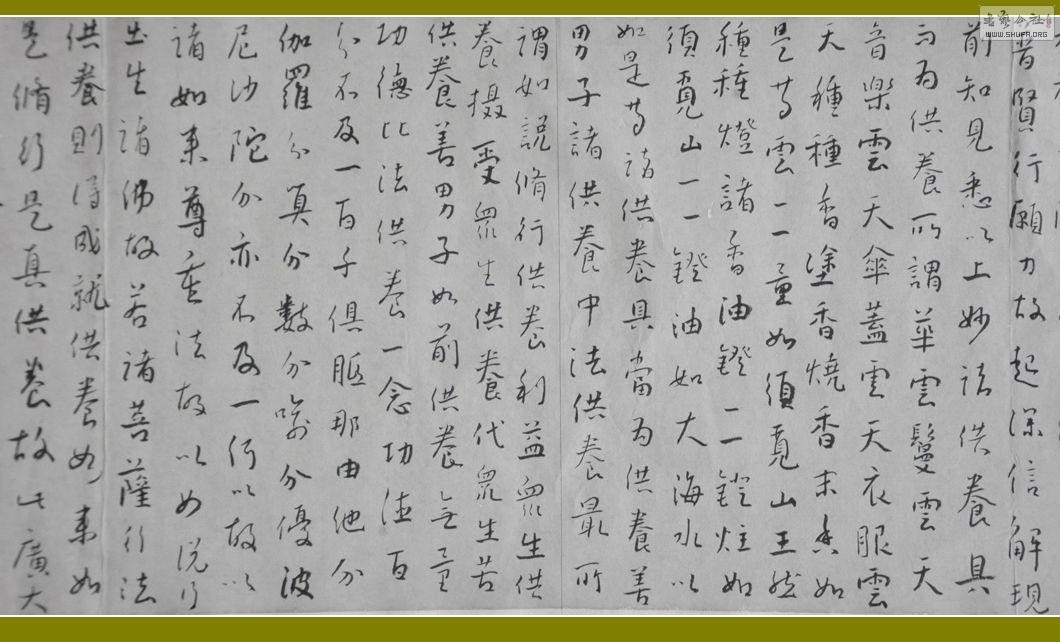 普賢行願力故起深信解現
前知見悉以上妙諸供養具
而為供養所謂華雲鬘雲天
音樂雲天傘蓋雲天衣服雲
天種種香塗香燒香末香如
是等雲一一量如須彌山王然
種種燈諸香油鐙一一鐙炷如
須彌山一一鐙油如大海水以
如是等諸供養具當為供養善
男子諸供養中法供養最所
謂如說脩行供養利益眾生供
養攝受眾生供養代眾生苦
供養善男子如前供養無量
功德比法供養一念功德百
分不及一百千俱胝那由他分
伽羅分算分數分喻分優波
尼沙陀分亦不及一何以故以
諸如來尊重法故以如說行
出生諸佛故若諸菩薩行法
供養則得成就供養如來如
是脩行是真供養故此廣大
書藝公社
WWW.SHUFA.ORG